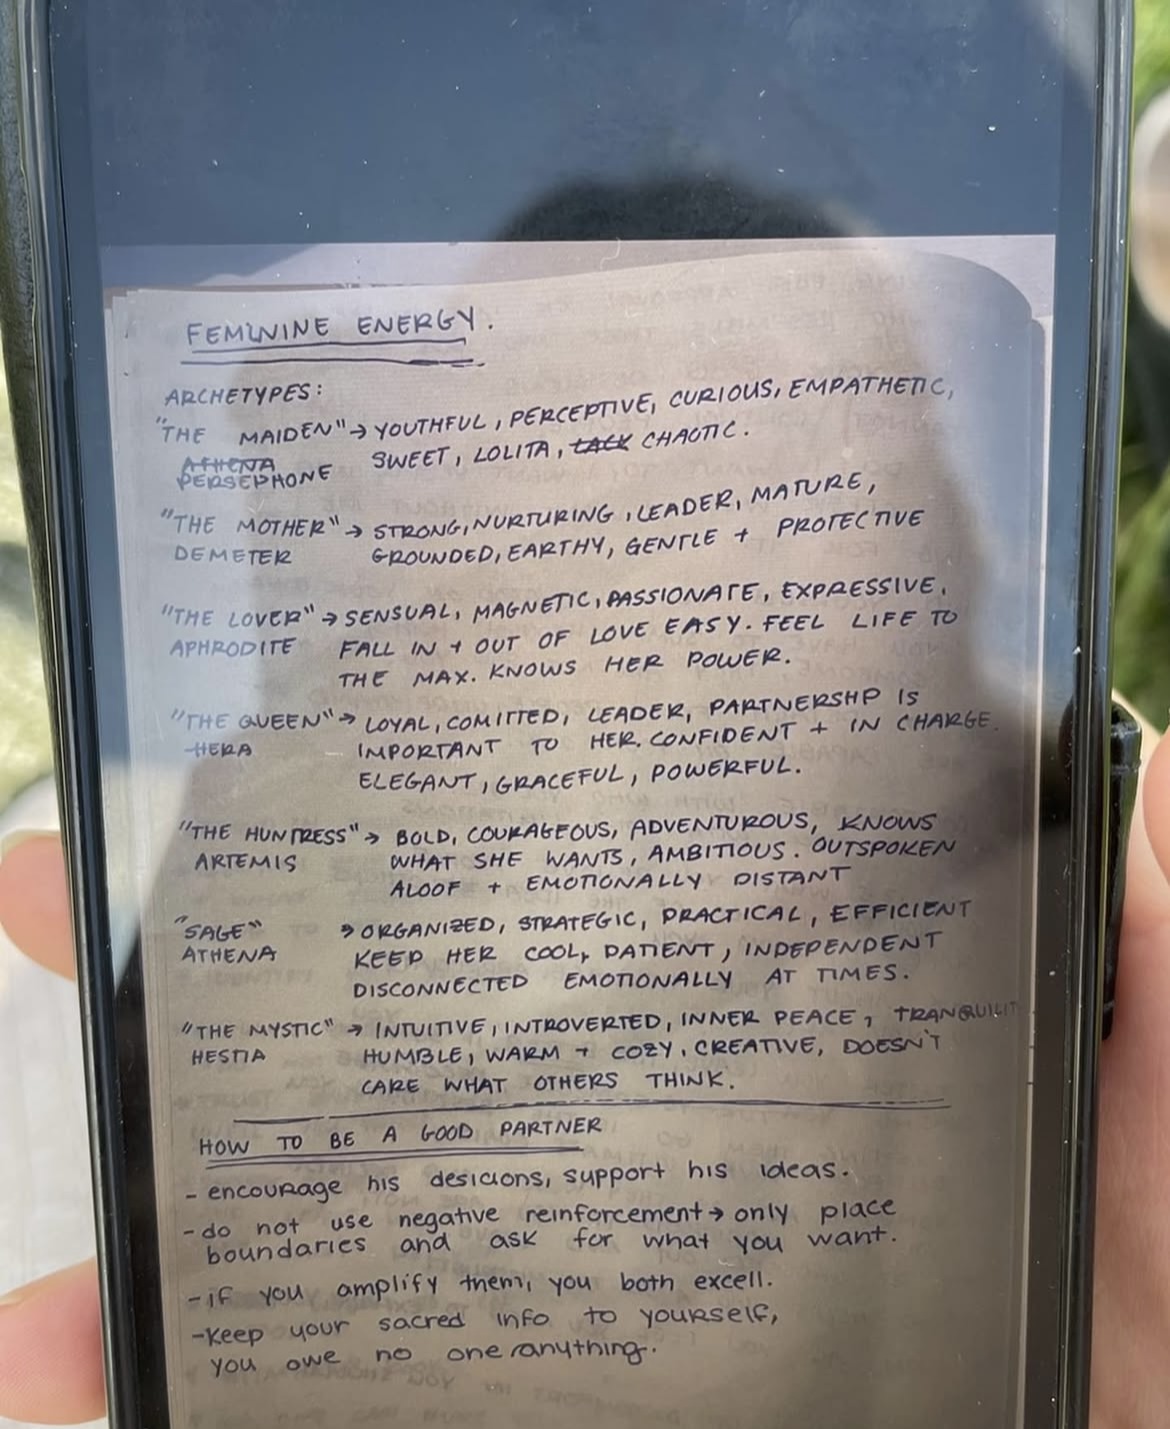 FEMININE ENERGY.
ARCHETYPES:
"THE MAIDEN" → YOUTHFUL, PERCEPTIVE, CURIOUS, EMPATHETIC,
ATHENA SWEET, LOLITA, LACK CHAOTIC.
PERSEPHONE
"THE MOTHER" → STRONG, NURTURING, LEADER, MATURE,
DEMETER GROUNDED, EARTHY, GENTLE + PROTECTIVE
"THE LOVER" → SENSUAL, MAGNETIC, PASSIONATE, EXPRESSIVE,
APHRODITE FALL IN + OUT OF LOVE EASY. FEEL LIFE TO
THE MAX. KNOWS HER POWER.
"THE QUEEN" → LOYAL, COMITTED, LEADER, PARTNERSHP IS
HERA IMPORTANT TO HER. CONFIDENT + IN CHARGE.
ELEGANT, GRACEFUL, POWERFUL.
"THE HUNTRESS" → BOLD, COURAGEOUS, ADVENTUROUS, KNOWS
ARTEMIS WHAT SHE WANTS, AMBITIOUS. OUTSPOKEN
ALOOF + EMOTIONALLY DISTANT
"SAGE" → ORGANIZED, STRATEGIC, PRACTICAL, EFFICIENT
ATHENA KEEP HER COOL, PATIENT, INDEPENDENT
DISCONNECTED EMOTIONALLY AT TIMES.
"THE MYSTIC" → INTUITIVE, INTROVERTED, INNER PEACE, TRANQUILIT
HESTIA HUMBLE, WARM + COZY, CREATIVE, DOESN'T
CARE WHAT OTHERS THINK.
HOW TO BE A GOOD PARTNER
- encourage his desicions, support his ideas.
- do not use negative reinforcement → only place
boundaries and ask for what you want.
- if you amplify them, you both excell.
- Keep your sacred info to yourself,
you owe no one anything.